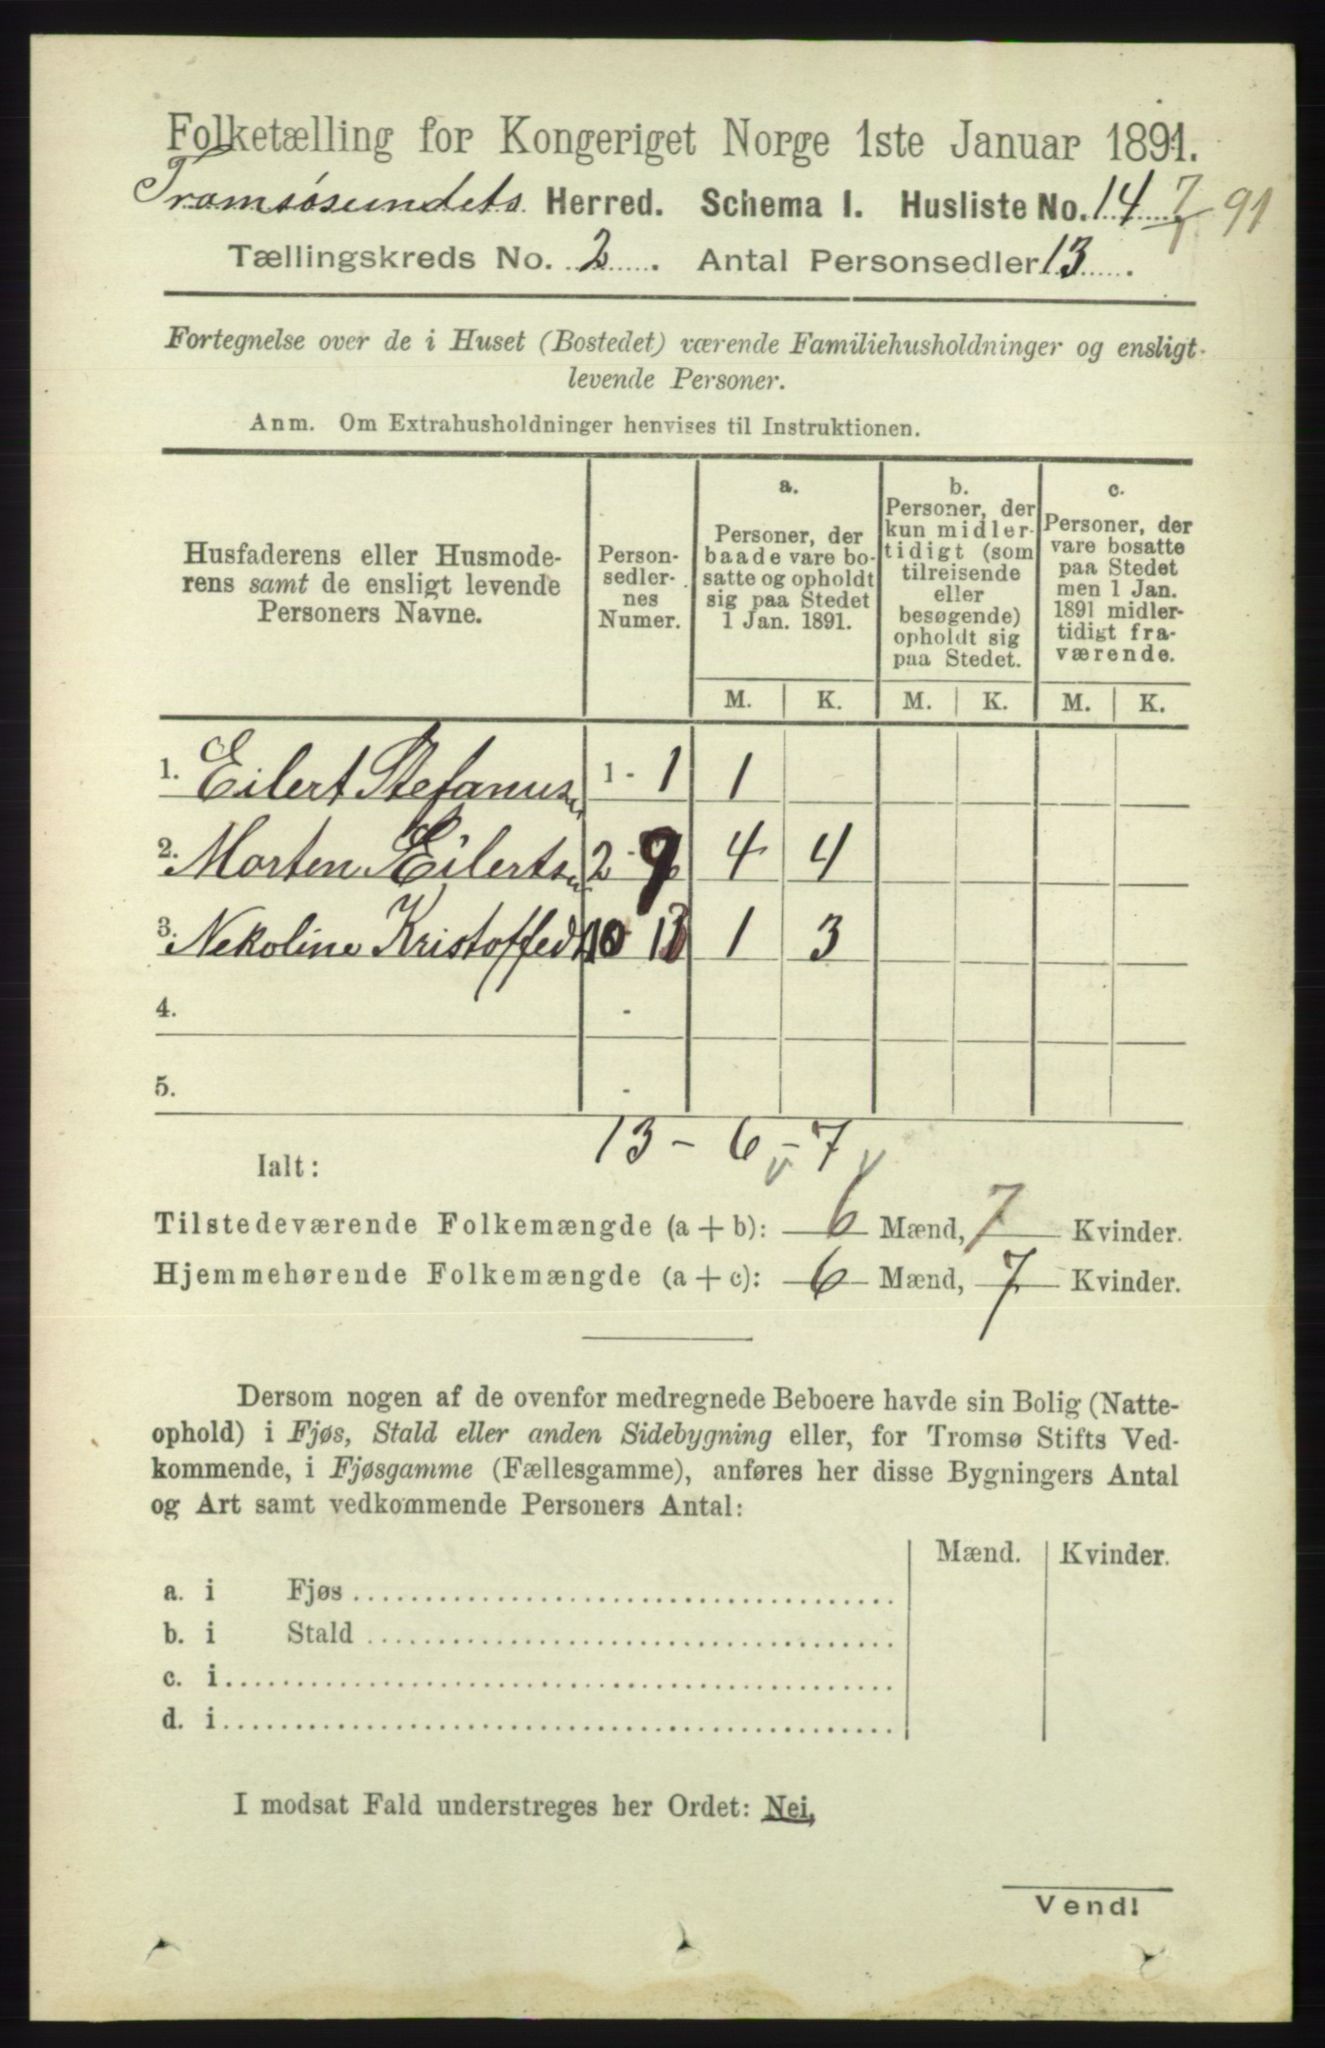 Folketælling for Kongeriget Norge 1ste Januar 1891.
Tromsøsundets Herred. Schema I. Husliste No. 14 7 91
Tællingskreds No. 2. Antal Personsedler 13.
Fortegnelse over de i Huset (Bostedet) værende Familiehusholdninger og ensligt
levende Personer.
Anm. Om Extrahusholdninger henvises til Instruktionen.
Husfaderens eller Husmode-
rens samt de ensligt levende
Personers Navne.
Person-
sedler-
nes
Numer.
a.
Personer, der
baade vare bo-
satte og opholdt
sig paa Stedet
1 Jan. 1891.
b.
Personer, der
kun midler-
tidigt (som
tilreisende
eller
besøgende)
opholdt sig
paa Stedet.
c.
Personer, der
vare bosatte
paa Stedet
men 1 Jan.
1891 midler-
tidigt fra-
værende.
M. K. M. K. M. K.
1. Eilert Stefanus 1 - 1 1
2. Morten Eilerts 2 - 9 4 4
3. Nekoline Kristoffed 10 13 1 3
4. -
5. -
Ialt: 13 - 6 - 7
Tilstedeværende Folkemængde (a + b): 6 Mænd, 7 Kvinder.
Hjemmehørende Folkemængde (a + c): 6 Mænd, 7 Kvinder.
Dersom nogen af de ovenfor medregnede Beboere havde sin Bolig (Natte-
ophold) i Fjøs, Stald eller anden Sidebygning eller, for Tromsø Stifts Ved-
kommende, i Fjøsgamme (Fællesgamme), anføres her disse Bygningers Antal
og Art samt vedkommende Personers Antal:
Mænd. Kvinder.
a. i Fjøs
b. i Stald
c. i
d. i
I modsat Fald understreges her Ordet: Nei.
Vend!